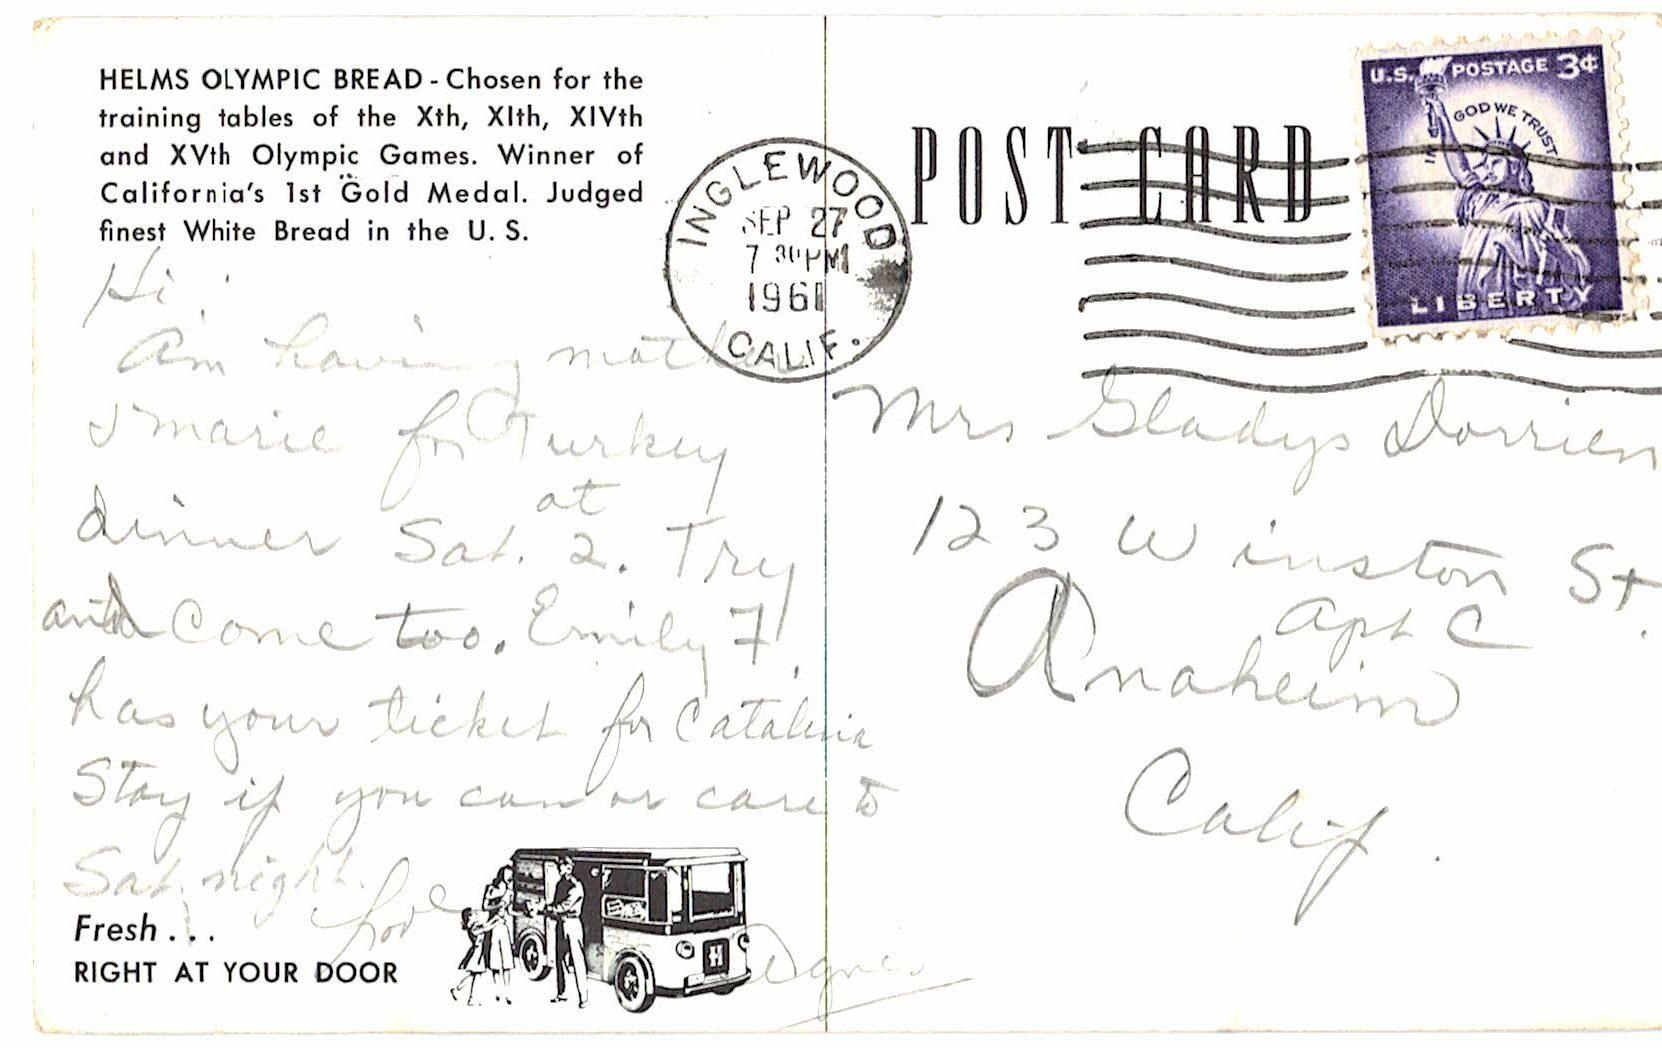 HELMS OLYMPIC BREAD - Chosen for the
training tables of the Xth, XIth, XIVth
and XVth Olympic Games. Winner of
California's 1st Gold Medal. Judged
finest White Bread in the U. S.
Hi.
Am having mother
& Marie for Turkey
dinner Sat. at 2. Try
and come too. Emily F.
has your ticket for Catalina
Stay if you can or care to
Sat. night.
Love
Agnes
Fresh...
RIGHT AT YOUR DOOR
H
INGLEWOOD
SEP 27
7 30 PM
1961
CALIF.
POST CARD
U.S. POSTAGE 3¢
IN GOD WE TRUST
LIBERTY
Mrs Gladys Dorrien
123 Winston St.
Apt C
Anaheim
Calif.